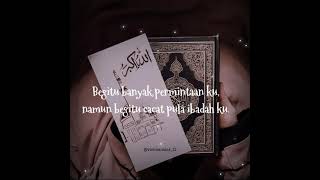 الله أكبر
Begitu banyak permintaan ku,
namun begitu cacat pula ibadah ku.